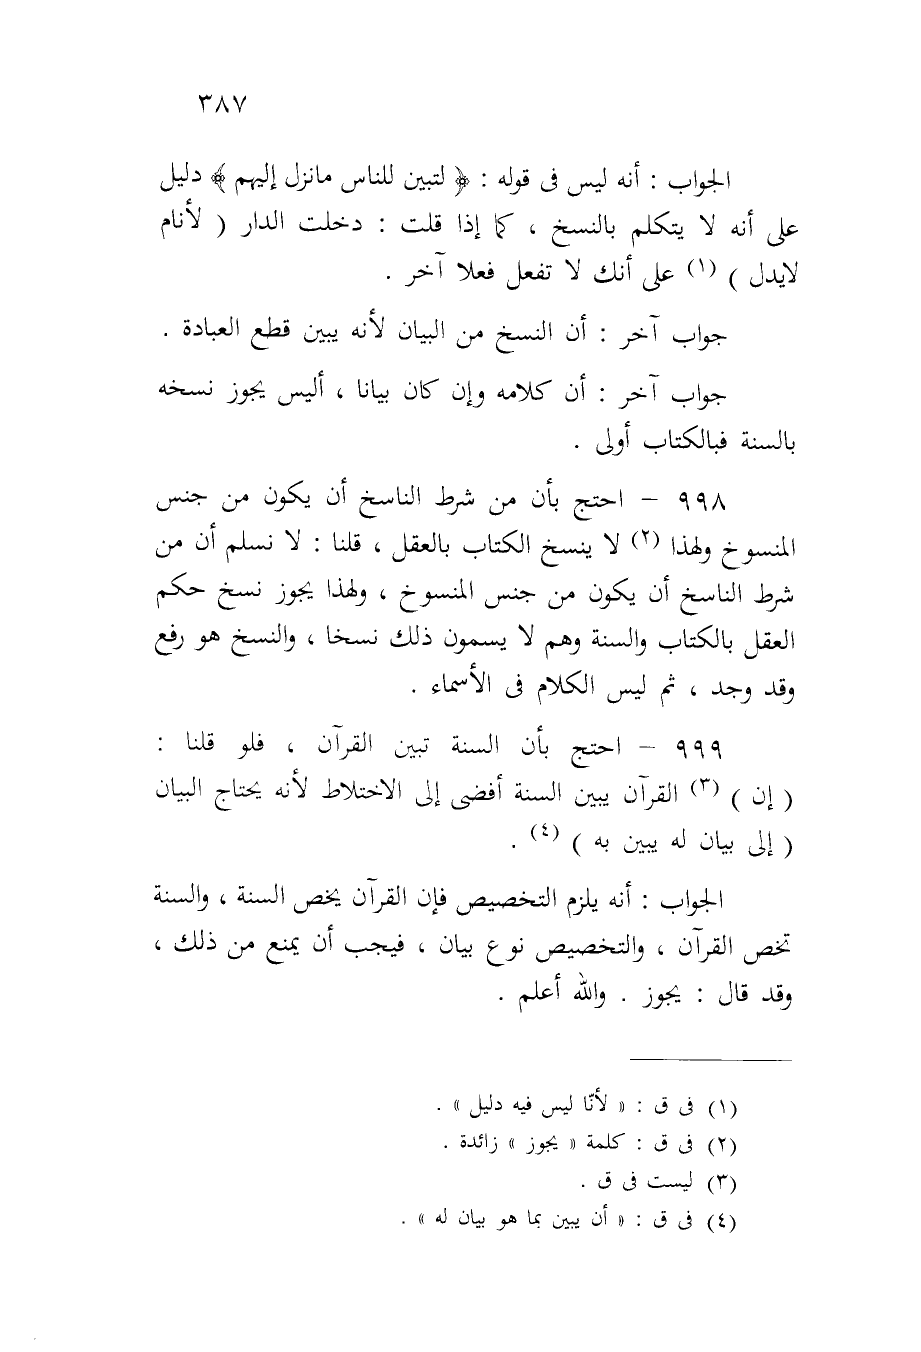 ٣٨٧
الجواب : أنه ليس فى قوله : ﴿ لتبين للناس مانزل إليهم ﴾ دليل
على أنه لا يتكلم بالنسخ ، كما إذا قلت : دخلت الدار ( لأنام
لايدل ) (١) على أنك لا تفعل فعلا آخر .
جواب آخر : أن النسخ من البيان لأنه يبين قطع العبادة .
جواب آخر : أن كلامه وإن كان بيانا ، أليس يجوز نسخه
بالسنة فبالكتاب أولى .
٩٩٨ – احتج بأن من شرط الناسخ أن يكون من جنس
المنسوخ ولهذا (٢) لا ينسخ الكتاب بالعقل ، قلنا : لا نسلم أن من
شرط الناسخ أن يكون من جنس المنسوخ ، ولهذا يجوز نسخ حكم
العقل بالكتاب والسنة وهم لا يسمون ذلك نسخا ، والنسخ هو رفع
وقد وجد ، ثم ليس الكلام فى الأسماء .
٩٩٩ – احتج بأن السنة تبين القرآن ، فلو قلنا :
( إن ) (٣) القرآن يبين السنة أفضى إلى الاختلاط لأنه يحتاج البيان
( إلى بيان له يبين به ) (٤) .
الجواب : أنه يلزم التخصيص فإن القرآن يخص السنة ، والسنة
تخص القرآن ، والتخصيص نوع بيان ، فيجب أن يمنع من ذلك ،
وقد قال : يجوز . والله أعلم .
(١) فى ق : « لأنّا ليس فيه دليل » .
(٢) فى ق : كلمة « يجوز » زائدة .
(٣) ليست فى ق .
(٤) فى ق : « أن يبين بما هو بيان له » .